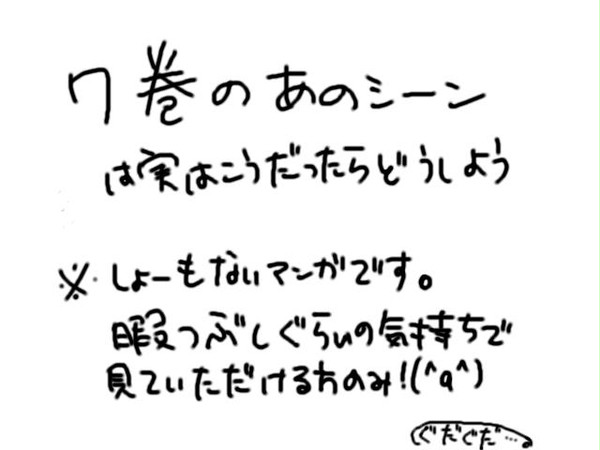 7巻のあのシーン
は実はこうだったらどうしよう
※しょーもないマンガです。
暇つぶしぐらいの気持ちで
見ていただける方のみ!(^q^)
ぐだぐだ…